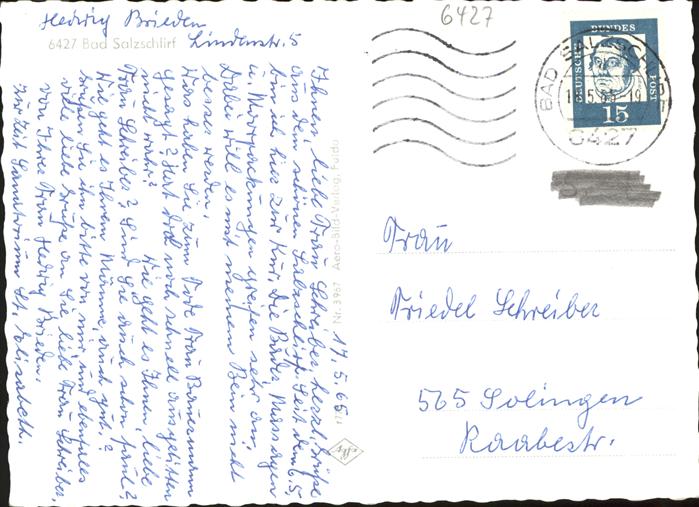 Hedwig Brieden
6427 Bad Salzschlirf Lindenstr. 5
17.5.65.
Ihnen, liebe Frau Schreiber, herzl. Grüße
aus dem schönen Salzschlirf. Seit dem 6.5.
bin ich hier zur Kur. Die Bäder, Massagen
u. Moorpackungen greifen sehr an.
Dabei will es mit meinem Bein nicht
besser werden.
Was haben Sie zum Tode Frau
gesagt? Hat doch noch schnell ausgelitten
nicht wahr? Wie geht es Ihnen, liebe
Frau Schreiber? Sind Sie auch schon
Wie geht es Ihrem Manne, auch gut?
Grüßen Sie ihn bitte von mir und ebenfalls
viele liebe Grüße an Sie liebe Frau Schreiber,
von Ihrer Frau Hedwig Brieden.
zur Zeit Sanatorium St. Elisabeth.
Nr. 3967 Aero-Bild-Verlag, Fulda
6427
DEUTSCHE BUNDESPOST
15
BAD SALZSCHLIRF
6427
Frau
Friedel Schreiber
565 Solingen
Raabestr.